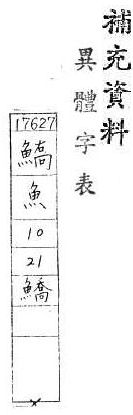 補充資料
異體字表
17627
鰝
魚
10
21
鱎